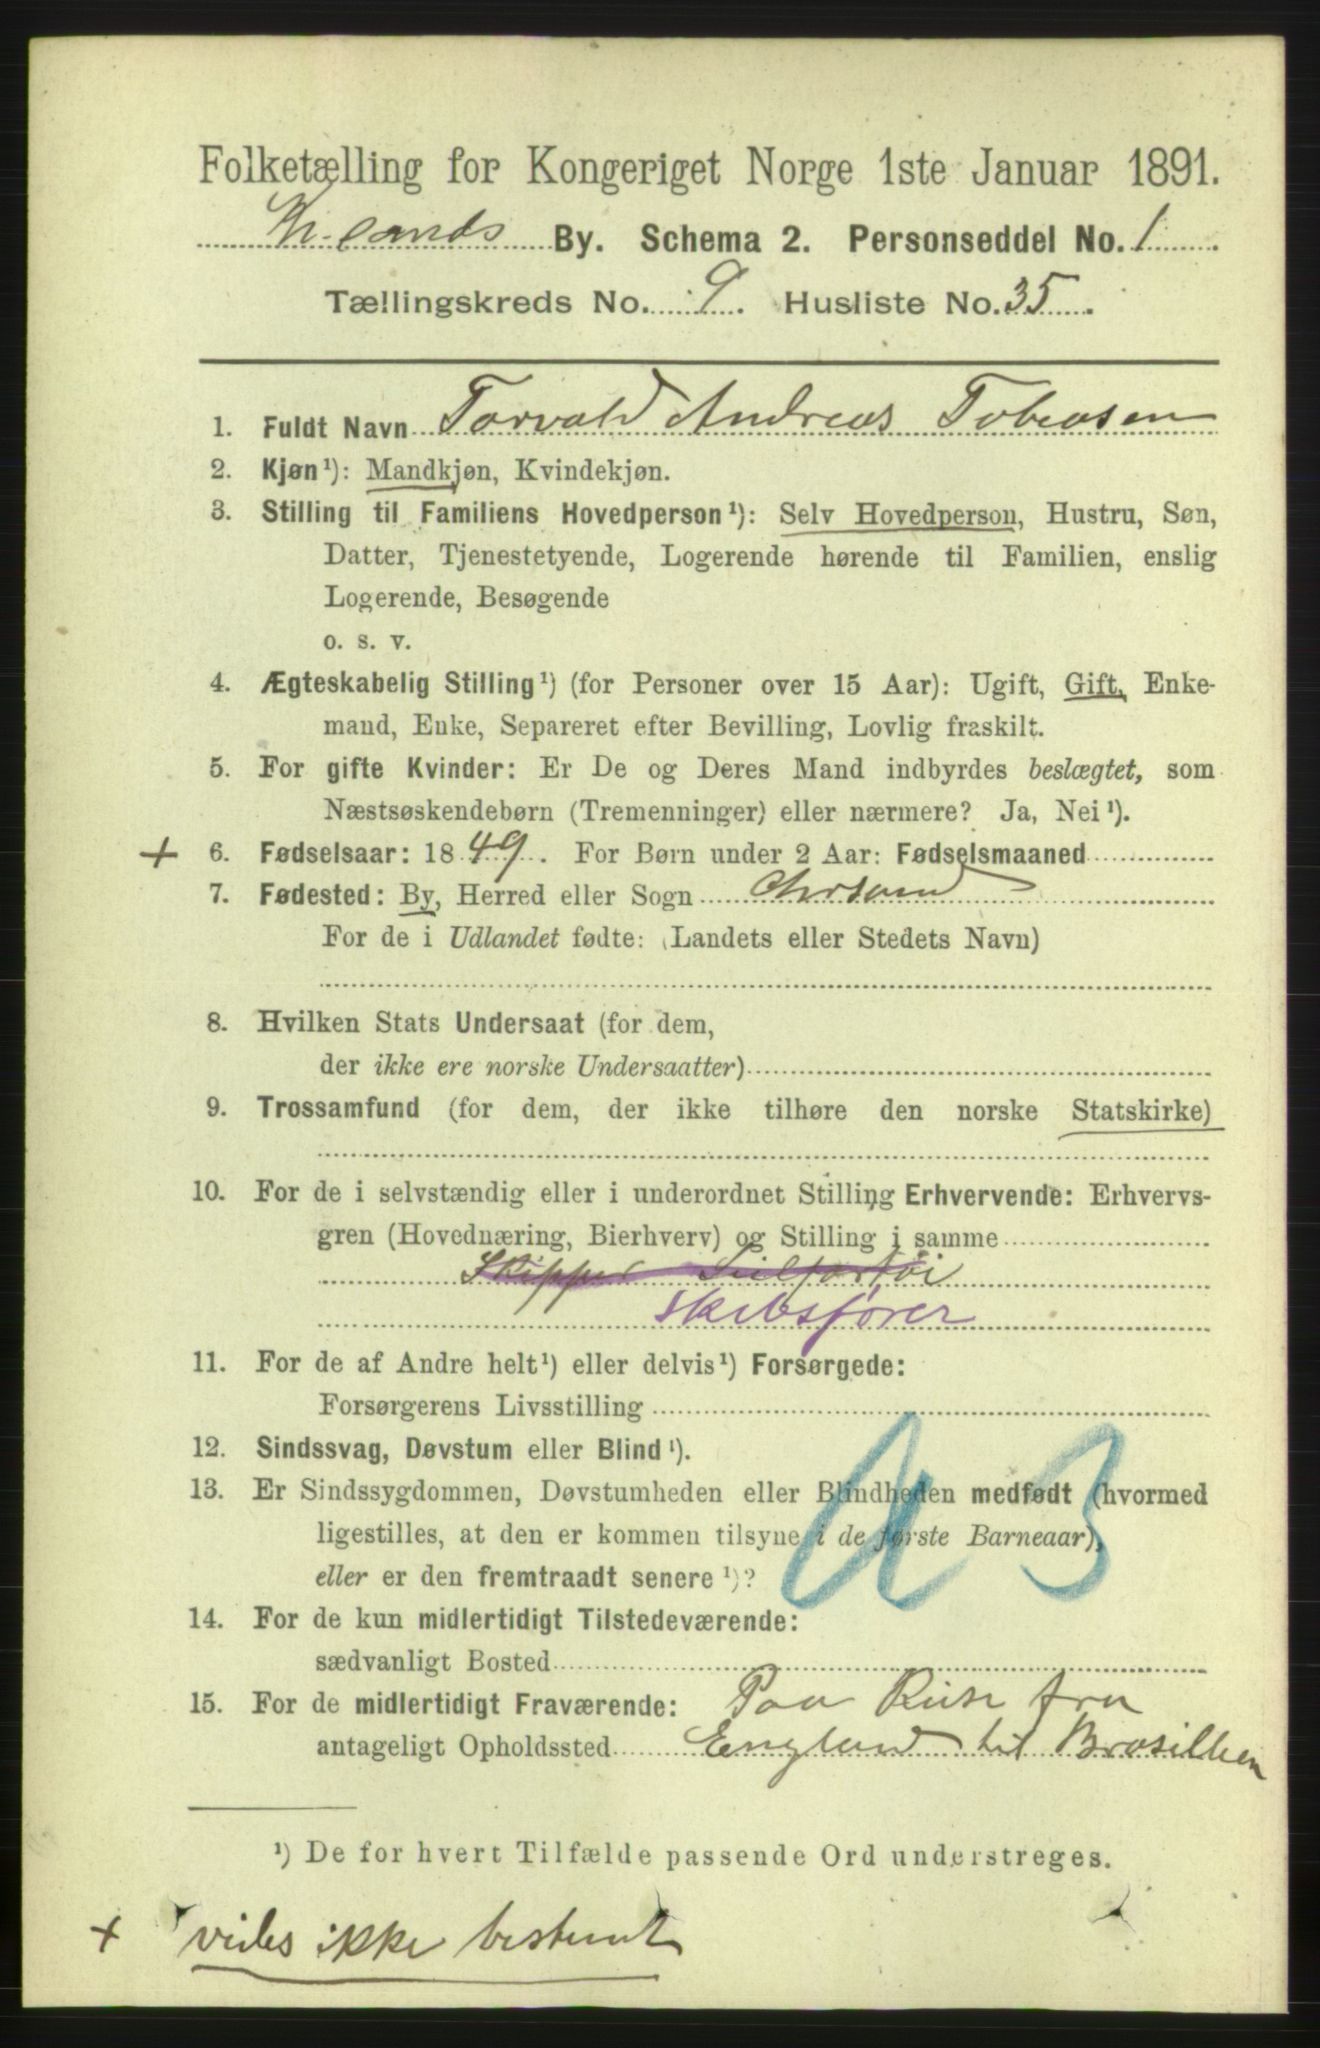 Folketælling for Kongeriget Norge 1ste Januar 1891.
Kr.sands By. Schema 2. Personseddel No. 1
Tællingskreds No. 9. Husliste No. 35.
1. Fuldt Navn Torvald Andreas Tobiasen
2. Kjøn¹): Mandkjøn, Kvindekjøn.
3. Stilling til Familiens Hovedperson¹): Selv Hovedperson, Hustru, Søn,
Datter, Tjenestetyende, Logerende hørende til Familien, enslig
Logerende, Besøgende
o. s. v.
4. Ægteskabelig Stilling¹) (for Personer over 15 Aar): Ugift, Gift, Enke-
mand, Enke, Separeret efter Bevilling, Lovlig fraskilt.
5. For gifte Kvinder: Er De og Deres Mand indbyrdes beslægtet, som
Næstsøskendebørn (Tremenninger) eller nærmere? Ja, Nei¹).
+ 6. Fødselsaar: 1849. For Børn under 2 Aar: Fødselsmaaned
7. Fødested: By, Herred eller Sogn Chrsand
For de i Udlandet fødte: (Landets eller Stedets Navn)
8. Hvilken Stats Undersaat (for dem,
der ikke ere norske Undersaatter)
9. Trossamfund (for dem, der ikke tilhøre den norske Statskirke)
10. For de i selvstændig eller i underordnet Stilling Erhvervende: Erhvervs-
gren (Hovednæring, Bierhverv) og Stilling i samme
Skipper Seilfartøi
Skibsfører
11. For de af Andre helt¹) eller delvis¹) Forsørgede:
Forsørgerens Livsstilling
12. Sindssvag, Døvstum eller Blind¹).
13. Er Sindssygdommen, Døvstumheden eller Blindheden medfødt (hvormed
ligestilles, at den er kommen tilsyne i de første Barneaar),
eller er den fremtraadt senere¹)?
14. For de kun midlertidigt Tilstedeværende:
sædvanligt Bosted
15. For de midlertidigt Fraværende: Paa Reise fra
antageligt Opholdssted England til Brasilien
¹) De for hvert Tilfælde passende Ord understreges.
+ vides ikke bestemt